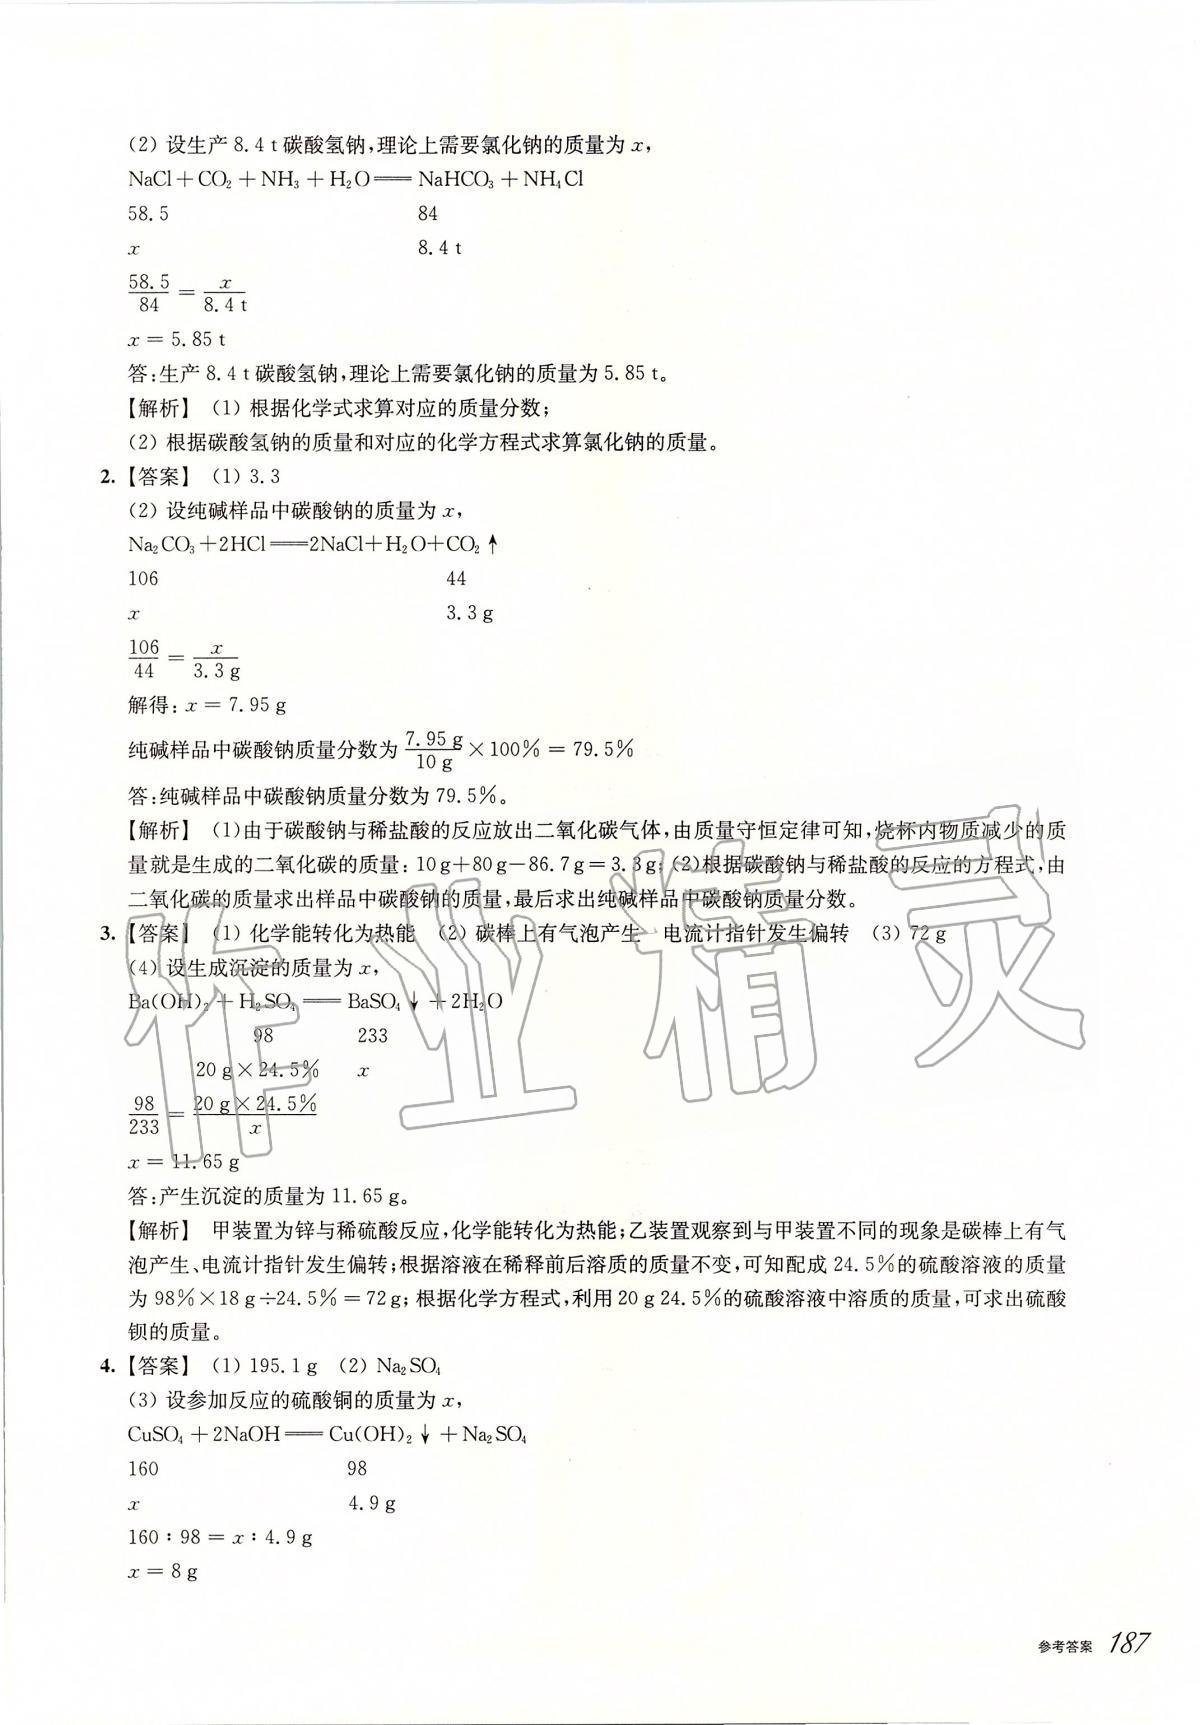 (2) 设生产 8.4 t 碳酸氢钠,理论上需要氯化钠的质量为 x,
NaCl + CO₂ + NH₃ + H₂O ══ NaHCO₃ + NH₄Cl
58.5 84
x 8.4 t
58.5/84 = x/8.4 t
x = 5.85 t
答:生产 8.4 t 碳酸氢钠,理论上需要氯化钠的质量为 5.85 t。
【解析】 (1) 根据化学式求算对应的质量分数;
(2) 根据碳酸氢钠的质量和对应的化学方程式求算氯化钠的质量。
2. 【答案】 (1) 3.3
(2) 设纯碱样品中碳酸钠的质量为 x,
Na₂CO₃+2HCl══2NaCl+H₂O+CO₂↑
106 44
x 3.3 g
106/44 = x/3.3 g
解得: x = 7.95 g
纯碱样品中碳酸钠质量分数为 7.95 g/10 g ×100% = 79.5%
答:纯碱样品中碳酸钠质量分数为 79.5%。
【解析】 (1)由于碳酸钠与稀盐酸的反应放出二氧化碳气体,由质量守恒定律可知,烧杯内物质减少的质
量就是生成的二氧化碳的质量: 10 g+80 g−86.7 g=3.3 g; (2)根据碳酸钠与稀盐酸的反应的方程式,由
二氧化碳的质量求出样品中碳酸钠的质量,最后求出纯碱样品中碳酸钠质量分数。
3. 【答案】 (1) 化学能转化为热能 (2) 碳棒上有气泡产生 电流计指针发生偏转 (3) 72 g
(4) 设生成沉淀的质量为 x,
Ba(OH)₂ + H₂SO₄ ══ BaSO₄↓ + 2H₂O
98 233
20 g×24.5% x
98/233 = 20 g×24.5%/x
x = 11.65 g
答:产生沉淀的质量为 11.65 g。
【解析】 甲装置为锌与稀硫酸反应,化学能转化为热能;乙装置观察到与甲装置不同的现象是碳棒上有气
泡产生、电流计指针发生偏转;根据溶液在稀释前后溶质的质量不变,可知配成 24.5%的硫酸溶液的质量
为 98%×18 g÷24.5% = 72 g; 根据化学方程式,利用 20 g 24.5%的硫酸溶液中溶质的质量,可求出硫酸
钡的质量。
4. 【答案】 (1) 195.1 g (2) Na₂SO₄
(3) 设参加反应的硫酸铜的质量为 x,
CuSO₄ + 2NaOH ══ Cu(OH)₂↓ + Na₂SO₄
160 98
x 4.9 g
160 : 98 = x : 4.9 g
x = 8 g
参考答案 187
作业精灵